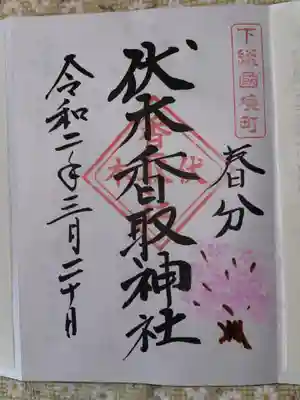 下総國境町
春分
伏木香取神社
令和二年三月二十日